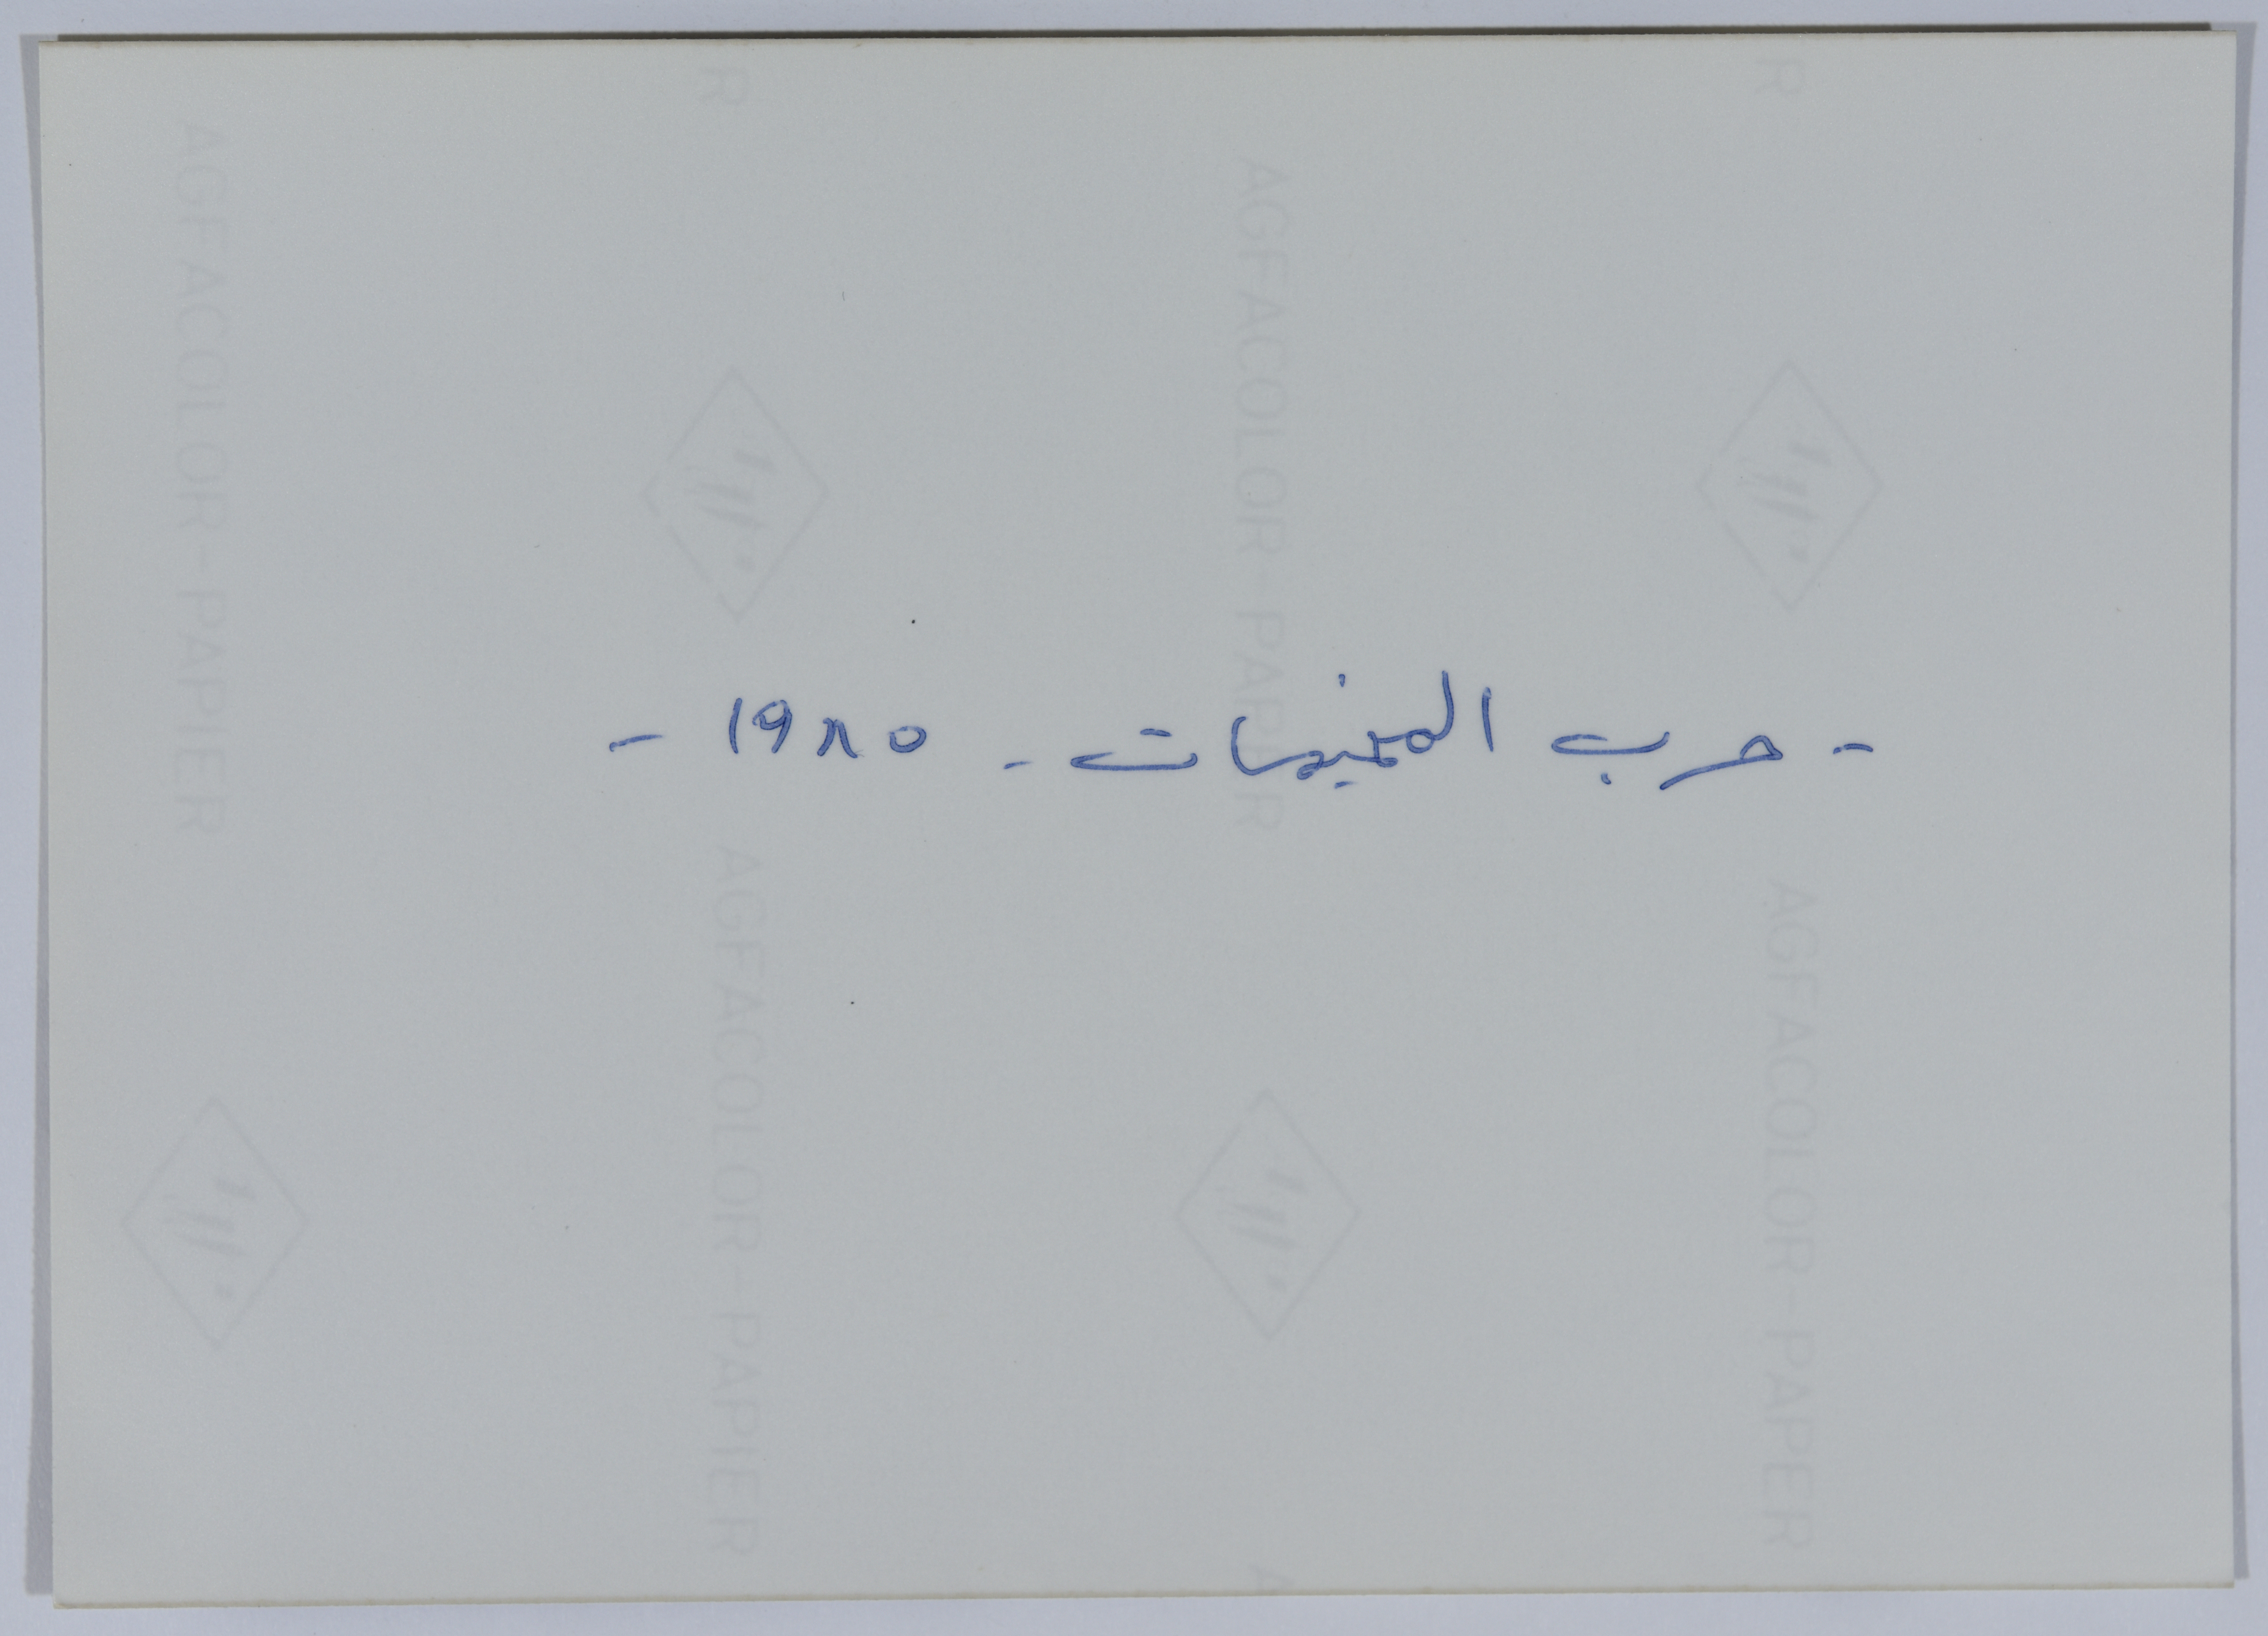 - حرب المخيمات - ١٩٨٥ -
R
R
AGFACOLOR-PAPIER
AGFACOLOR-PAPIER
AGFACOLOR-PAPIER
AGFACOLOR-PAPIER
A